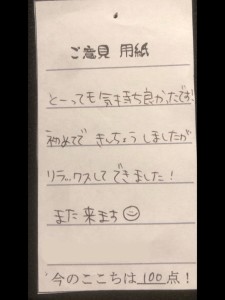 ご意見 用紙
とーっても気持ち良かったです!
初めてで きんちょう しましたが
リラックスして できました!
また来ます☺
今のここちは100点!